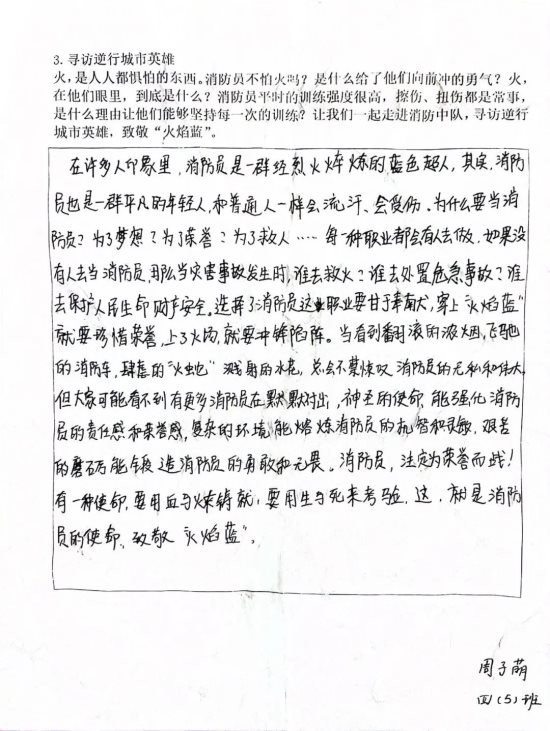 3. 寻访逆行城市英雄
火，是人人都惧怕的东西。消防员不怕火吗？是什么给了他们向前冲的勇气？火，
在他们眼里，到底是什么？消防员平时的训练强度很高，擦伤、扭伤都是常事，
是什么理由让他们能够坚持每一次的训练？让我们一起走进消防中队，寻访逆行
城市英雄，致敬“火焰蓝”。
在许多人印象里，消防员是一群经烈火焠炼的蓝色超人，其实，消防
员也是一群平凡的年轻人，和普通人一样会流汗、会受伤。为什么要当消
防员？为了梦想？为了荣誉？为了救人……每一种职业都会有人去做，如果没
有人去当消防员，那么当灾害事故发生时，谁去救火？谁去处置危急事故？谁
去保护人民生命财产安全。选择了消防员这业职业要甘于奉献，穿上“火焰蓝”
就要珍惜荣誉，上了火场，就要冲锋陷阵。当看到翻滚的浓烟，飞驰
的消防车，肆虐的“火蛇” 溅身的水花，总会不禁惊叹消防员的无私和伟大，
但大家可能看不到有更多消防员在默默付出，神圣的使命，能强化消防
员的责任感和荣誉感，复杂的环境能熔炼消防员的机智和灵敏，艰苦
的磨砺能锻造消防员的勇敢和无畏。消防员，注定为荣誉而战！
有一种使命，要用血与火来铸就，要用生与死来考验，这，就是消防
员的使命，致敬“火焰蓝”。
周子萌
四（5）班